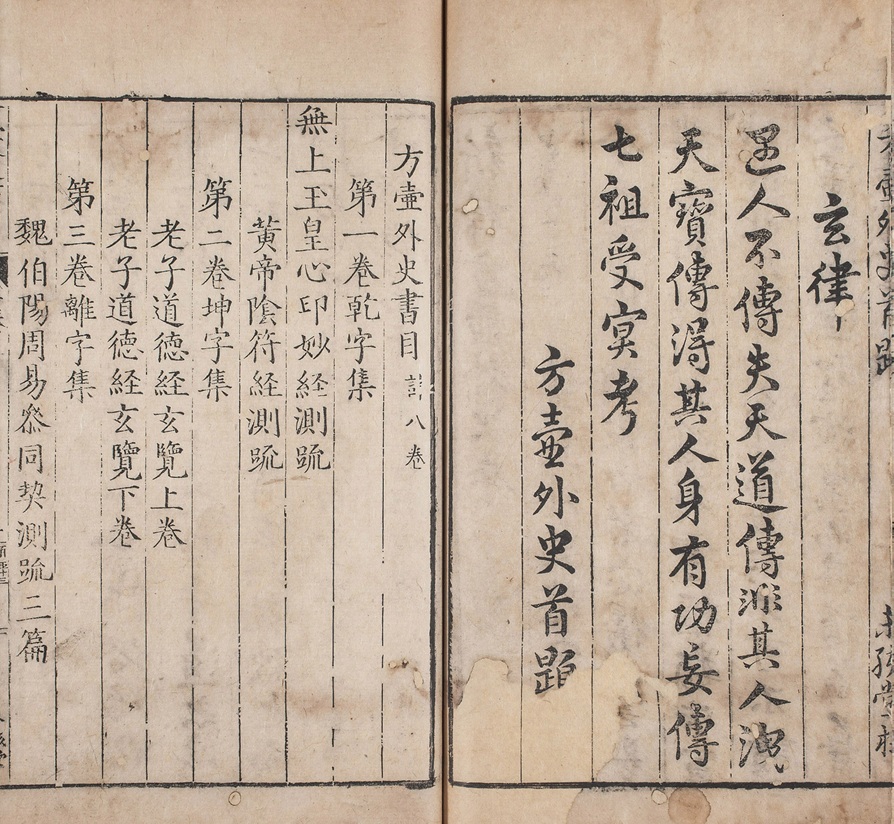 方壺外史首題
玄律
遇人不傳失天道傳非其人洩
天寶傳得其人身有功妄傳
七祖受冥考
方壺外史首題
方壺外史書目 計八卷
第一卷乾字集
無上玉皇心印妙経測疏
黃帝陰符経測疏
第二卷坤字集
老子道德経玄覽上卷
老子道德経玄覽下卷
第三卷離字集
魏伯陽周易叅同契測疏三篇